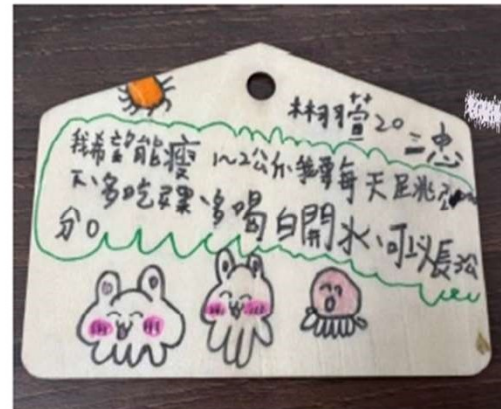 林羽萱20三忠
我希望能瘦1~2公斤我要每天足兆
不多吃零、多喝白開水、可以長公
分。